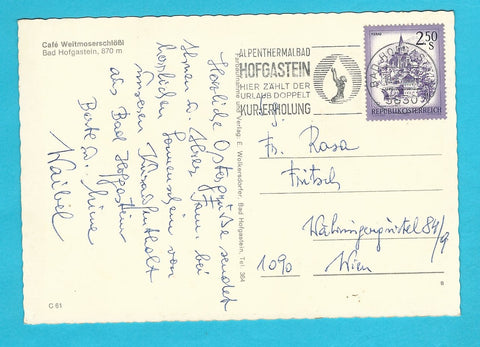 Café Weitmoserschlößl
Bad Hofgastein, 870 m
Herzliche Ostergrüße sendet
Ihnen u. Ihrer Fam. bei
herrlichen Sonnenschein von
unseren Kuraufenthalt
aus Bad Hofgastein
Berta u.
Waibel
C 61
Verlag: E. Wolkersdorfer, Bad Hofgastein, Tel. 364
ALPENTHERMALBAD
HOFGASTEIN
HIER ZÄHLT DER
URLAUB DOPPELT
KUR-ERHOLUNG
MURAU
2.50
S
REPUBLIK ÖSTERREICH
BAD HOFGASTEIN
5630
Fr. Rosa
Fritsch
Währingergürtel 84/9
1090 Wien